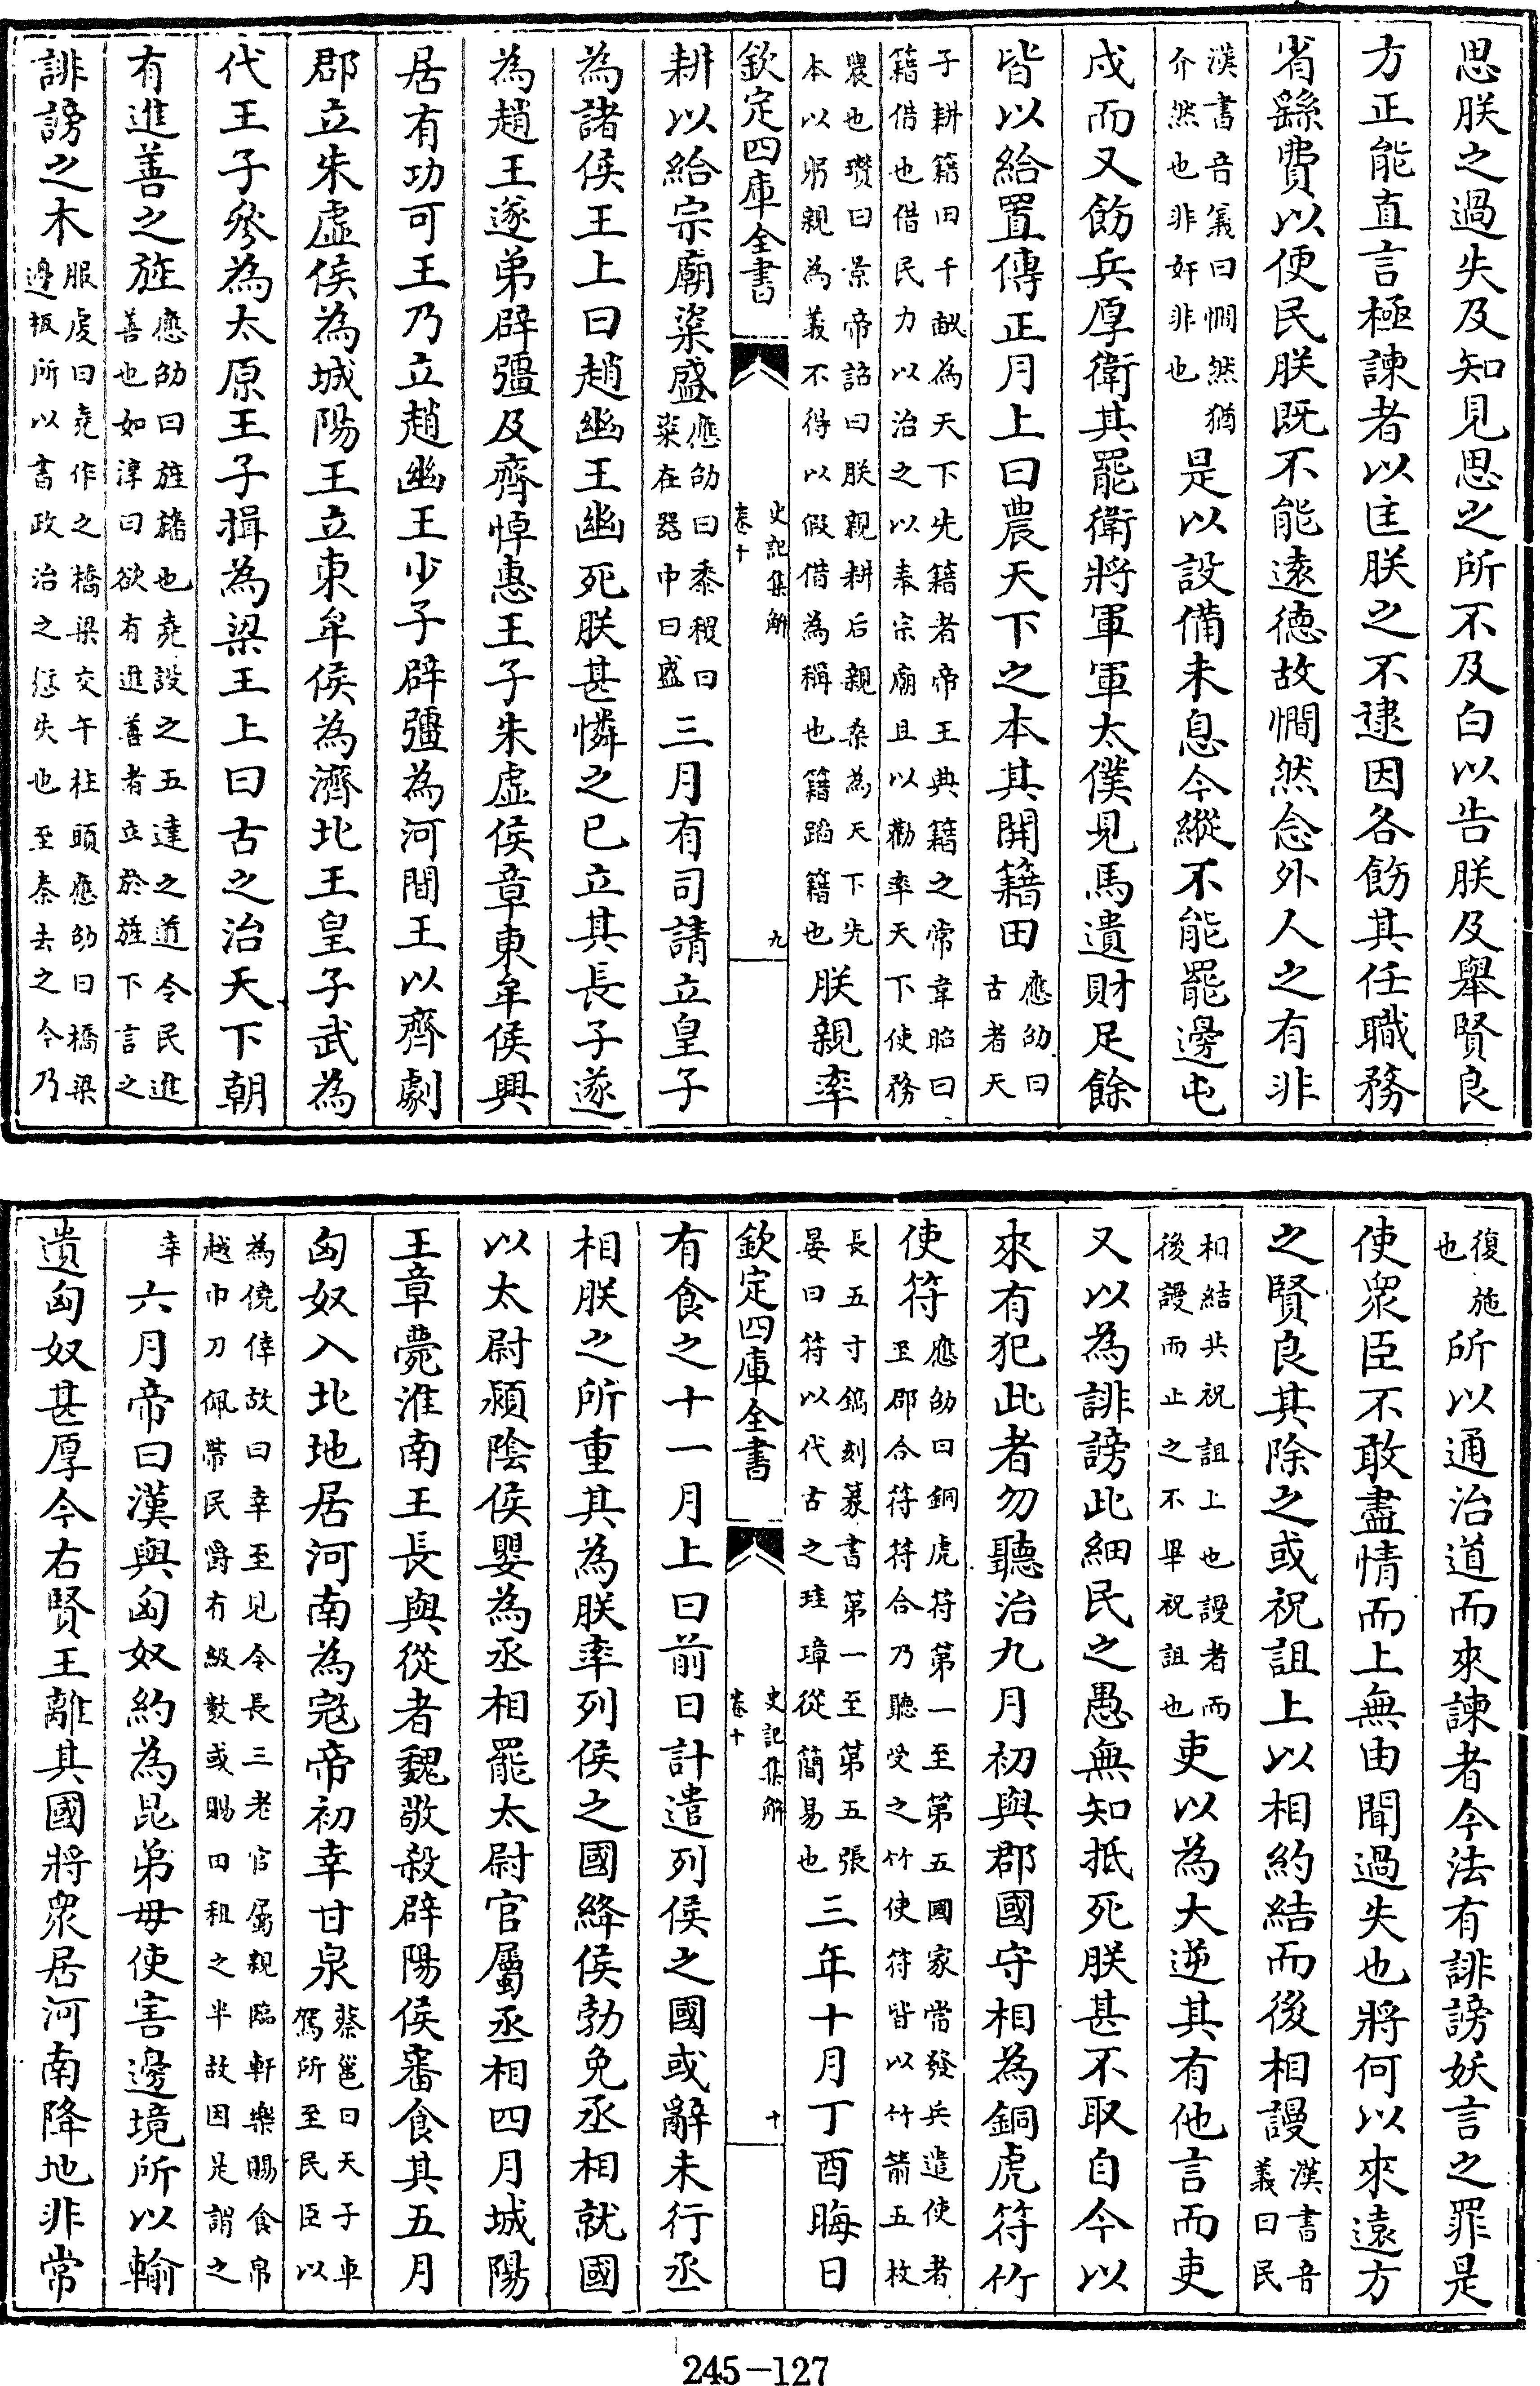 思朕之過失及知見思之所不及白以告朕及舉賢良
方正能直言極諫者以匡朕之不逮因各飭其任職務
省繇費以便民朕既不能遠德故憪然念外人之有非
漢書音義曰憪然猶
介然也非奸非也
是以設備未息今縱不能罷邊屯
戍而又飭兵厚衛其罷衛將軍軍太僕見馬遺財足餘
皆以給置傳正月上曰農天下之本其開籍田
應劭曰
古者天
子耕籍田千畝為天下先籍者帝王典籍之常韋昭曰
籍借也借民力以治之以奉宗廟且以勸率天下使務
農也瓚曰景帝詔曰朕親耕后親桑為天下先
本以躬親為義不得以假借為稱也籍蹈籍也
朕親率
欽定四庫全書
史記集解
卷十
九
耕以給宗廟粢盛
應劭曰黍稷曰
粢在器中曰盛
三月有司請立皇子
為諸侯王上曰趙幽王幽死朕甚憐之已立其長子遂
為趙王遂弟辟彊及齊悼惠王子朱虛侯章東牟侯興
居有功可王乃立趙幽王少子辟彊為河間王以齊劇
郡立朱虛侯為城陽王立東牟侯為濟北王皇子武為
代王子參為太原王子揖為梁王上曰古之治天下朝
有進善之旌
應劭曰旌旛也堯設之五達之道令民進
善也如淳曰欲有進善者立於旌下言之
誹謗之木
服虔曰堯作之橋梁交午柱頭應劭曰橋梁
邊板所以書政治之愆失也至秦去之今乃
復施
也
所以通治道而來諫者今法有誹謗妖言之罪是
使衆臣不敢盡情而上無由聞過失也將何以來遠方
之賢良其除之或祝詛上以相約結而後相謾
漢書音
義曰民
相結共祝詛上也謾者而
後謾而止之不畢祝詛也
吏以為大逆其有他言而吏
又以為誹謗此細民之愚無知抵死朕甚不取自今以
來有犯此者勿聽治九月初與郡國守相為銅虎符竹
使符
應劭曰銅虎符第一至第五國家當發兵遣使者
至郡合符符合乃聽受之竹使符皆以竹箭五枚
長五寸鐫刻篆書第一至第五張
晏曰符以代古之珪璋從簡易也
三年十月丁酉晦日
欽定四庫全書
史記集解
卷十
十
有食之十一月上曰前日計遣列侯之國或辭未行丞
相朕之所重其為朕率列侯之國絳侯勃免丞相就國
以太尉潁陰侯嬰為丞相罷太尉官屬丞相四月城陽
王章薨淮南王長與從者魏敬殺辟陽侯審食其五月
匈奴入北地居河南為寇帝初幸甘泉
蔡邕曰天子車
駕所至民臣以
為僥倖故曰幸至見令長三老官屬親臨軒樂賜食帛
越巾刀佩帶民爵有級數或賜田租之半故因是謂之
幸
六月帝曰漢與匈奴約為昆弟毋使害邊境所以輸
遺匈奴甚厚今右賢王離其國將衆居河南降地非常
245-127